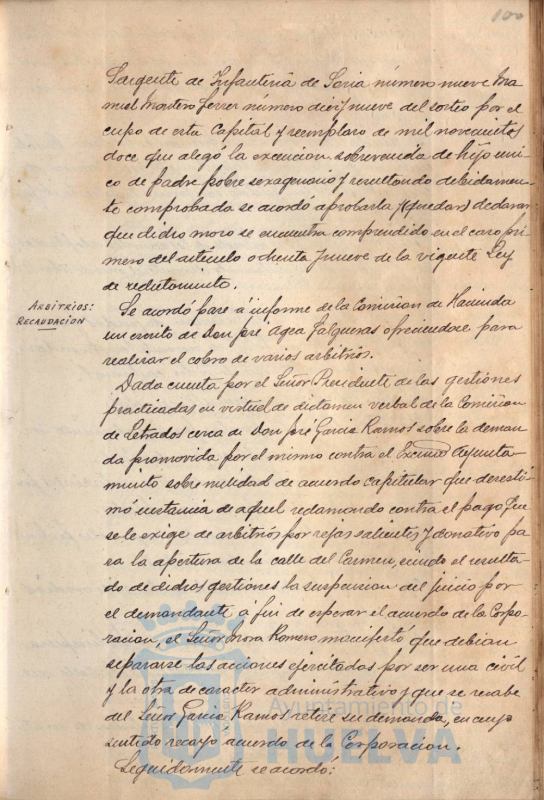 100
Sargento de Infantería de Soria número nueve Ma
nuel Montero Ferrer número diez y nueve del sorteo por el
cupo de esta Capital y reemplazo de mil novecientos
doce que alegó la excención sobrevenida de hijo úni
co de padre pobre sexagenario y resultando debidamen-
te comprobada se acordó aprobarla y (quedar) declarar
que dicho mozo se encuentra comprendido en el caso pri
mero del artículo ochenta y nueve de la vigente Ley
de reclutamiento.
ARBITRIOS:
RECAUDACION
Se acordó pase á informe de la Comisión de Hacienda
un escrito de Don José Agea Falgueras ofreciendose para
realizar el cobro de varios arbitrios.
Dada cuenta por el Señor Presidente de las gestiones
practicadas en virtud de dictamen verbal de la Comisión
de Letrados cerca de Don José García Ramos sobre la deman
da promovida por el mismo contra el Excmo Ayunta-
miento sobre nulidad de acuerdo capitular que desesti
mó instancia de aquel reclamando contra el pago que
se le exige de arbitrios por rejas salientes y donativo pa
ra la apertura de la calle del Carmen, siendo el resulta
do de dichas gestiones la suspensión del juicio por
el demandante á fin de esperar el acuerdo de la Corpo
ración, el Señor Mora Romero manifestó que debían
separarse las acciones ejercitadas por ser una civil
y la otra de carácter administrativo y que se recabe
del Señor García Ramos retire su demanda, en cuyo
sentido recayó acuerdo de la Corporación.
Seguidamente se acordó:
Ayuntamiento de
HUELVA